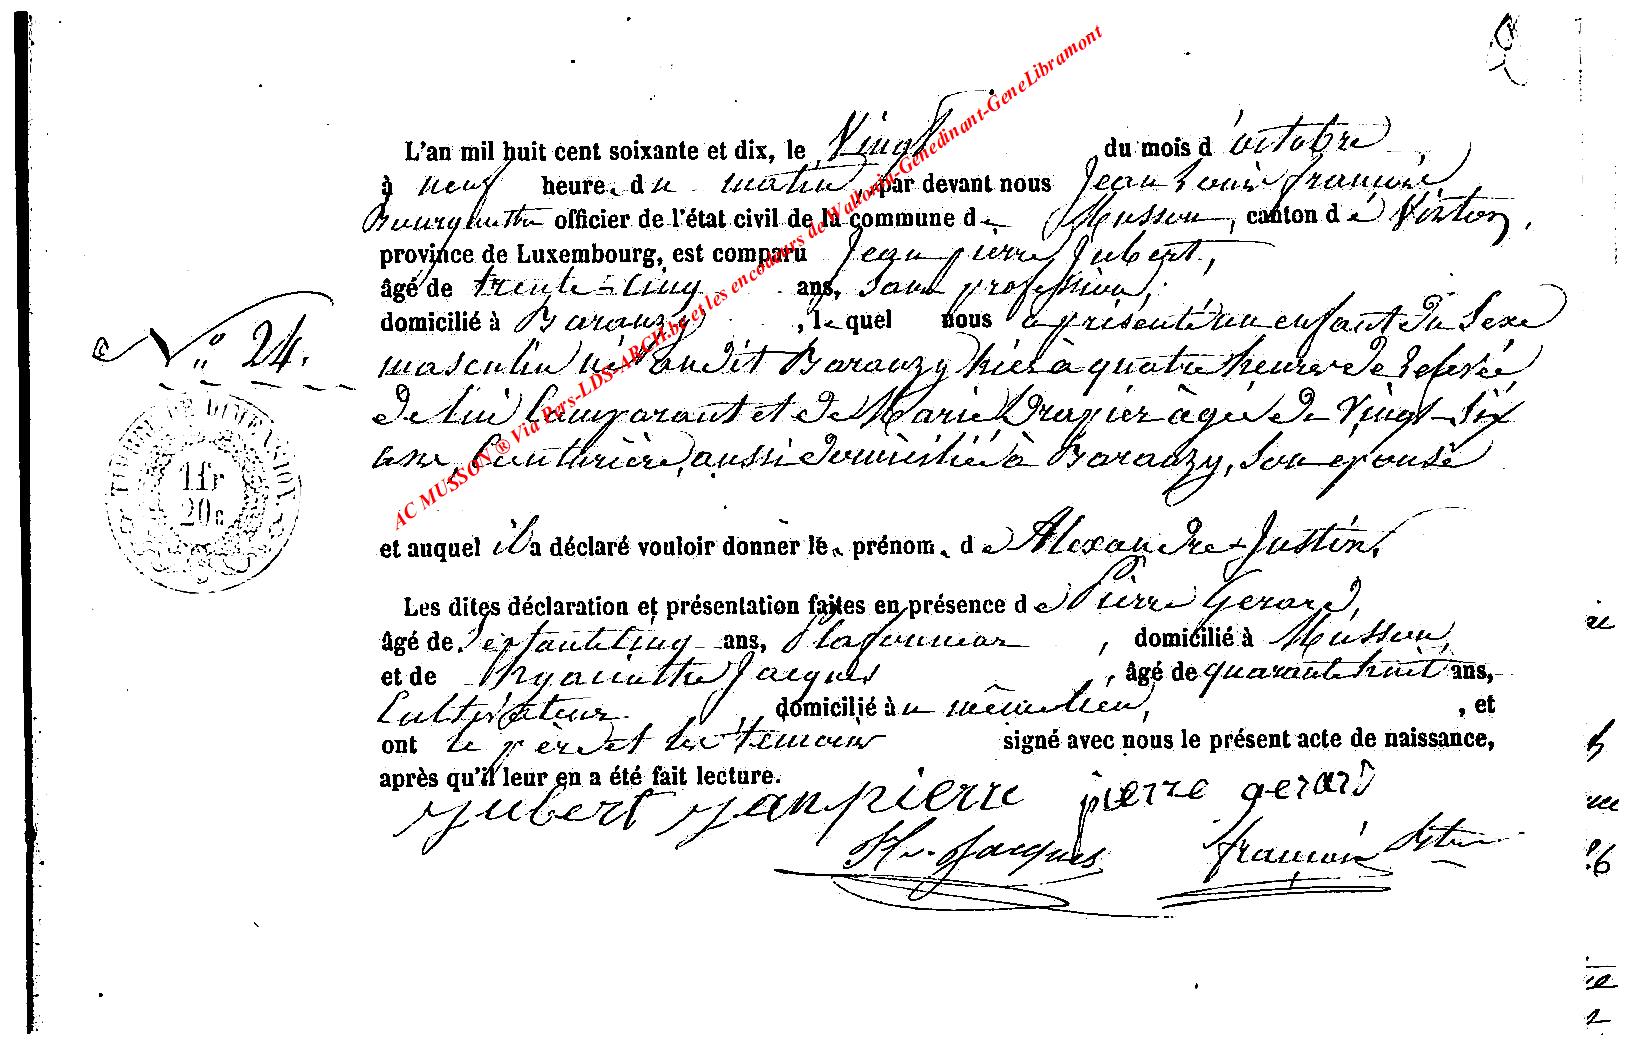 L'an mil huit cent soixante et dix, le Vingt du mois d'octobre
à neuf heure. du matin, par devant nous Jean Louis françois
officier de l'état civil de la commune de Musson, canton de Virton,
province de Luxembourg, est comparu Jean pierre Jubert,
âgé de trente-cinq ans, sans profession,
domicilié à Baranzy, lequel nous a présenté un enfant du Sexe
masculin né audit Baranzy hier à quatre heures de relevée,
de lui Comparant et de Marie Drapier âgée de Vingt-Six
ans, Couturière, aussi domiciliée à Baranzy, son epouse
N° 24.
TIMBRE DE DIMENSION
1 fr
20 c
et auquel il a déclaré vouloir donner le. prénom. de Alexandre Justin.
Les dites déclaration et présentation faites en présence de Pierre Gerard,
âgé de Septante cinq ans, Plafonneur, domicilié à Musson,
et de hyacinthe Jacques, âgé de quarante huit ans,
Cultivateur domicilié à même lieu, , et
ont le père et les témoins signé avec nous le présent acte de naissance,
après qu'il leur en a été fait lecture.
Jubert Janpierre pierre gerard
Hte. Jacques françois
AC MUSSON ® Via Pars-LDS-ARCH.be et les encodeurs de Wallonia-Genedinant-GeneLibramont